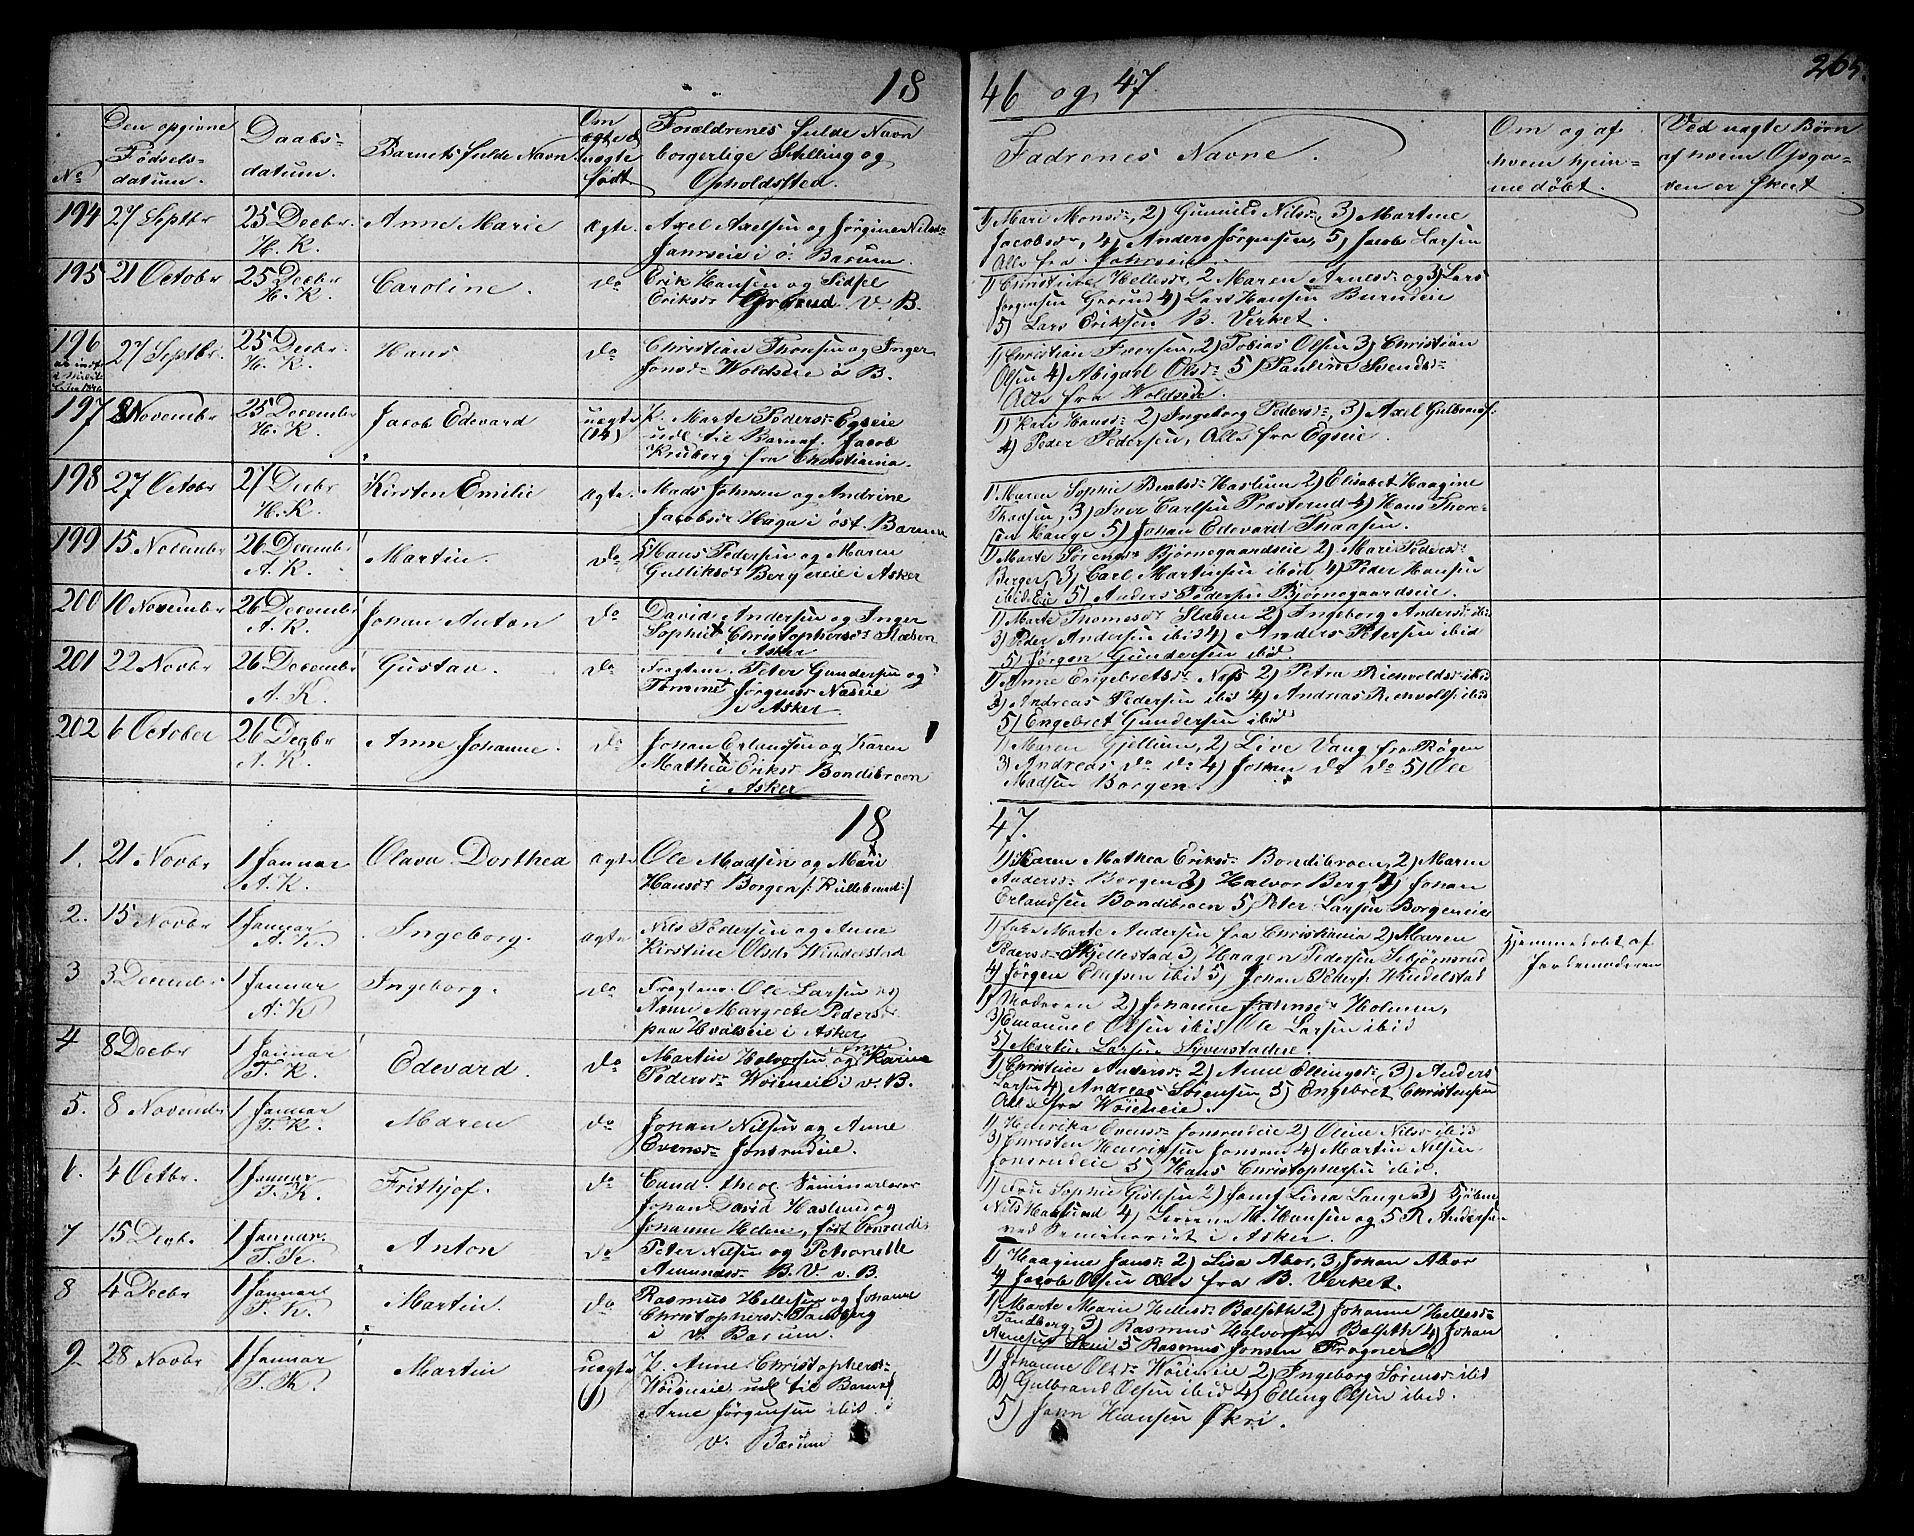 18
46 og 47
265.
No
Den opgivne
Fødsels-
datum.
Daabs-
datum.
Barnets fulde Navn
Om
ægte el
uægte
født
Forældrenes fulde Navn
borgerlige Stilling og
Opholdssted.
Fadrenes Navne.
Om og af
hvem hjem-
medøbt.
Ved uægte Børn
af hvem Opgi-
ven er skeet
194 27 Septbr 25 Decbr Anne Marie ægte. Axel Axelsen og Jørgine Nilsdr
H. K. i ø. Barum.
1) Mari Monsdr, 2) Gunnild Nilsdr 3) Martine
Jacobsdr, 4) Anders Jørgensen, 5) Jacob Larsen
Alle fra
195 21 Octobr 25 Decbr Caroline. do Erik Hansen og Sidsel
H. K. Eriksdr Grorud V. B.
1) Christine Hellesdr, 2 Maren Arnesdr og 3) Lars
Jørgensen Grorud 4) Lars Hansen
5) Lars Eriksen B. Verket.
196 27 Septbr. 25 Decbr. Hans do Christian Thoresen og Inger
H. K. Jonsdr Woldseie ø B.
1) Christian Iversen, 2) Tobias Olsen 3) Christian
Olsen 4) Abigael Olsdr 5) Pauline Svendsdr
Alle fra Woldseie.
197 8 Novembr 25 Decembr Jacob Edevard uægte p. Marte Pedersdr Egseie
H. K. (14) udl til Barnef. Jacob
fra Christiania.
1) Kari Hansdr 2) Ingeborg Pedersdr 3) Axel Gulbrands.
4) Peder Pedersen, Alle fra Egseie.
198 27 Octobr 27 Decbr Kirsten Emilie ægte. Mads Johnsen og Andrine
H. K. Jacobsdr Haga i øst. Barum
1) Maren Sophie Berntsdr Haslum 2) Elisabet Haagine
Thaasen, 3) Iver Carlsen Præsterud 4) Hans Thore-
sen Hauge 5) Johan Edevard Thaasen.
199 15 Novembr 26 Decembr Martin. do Hans Pedersen og Maren
A. K. Gulliksdr Berg ereie i Asker
1) Marte Sørensdr Bjørnegaardseie 2) Mari Pedersdr
Berger, 3) Carl Martinsen ibid 4) Peder Hansen
ibid Eie 5) Anders Pedersen Bjørnegaardseie.
200 10 Novembr 26 Decembr Johan Anton do David Andersen og Inger
A. K. Sophie Christophersdr
i Asker
1) Marte Thomesdr Staben 2) Ingeborg Andersdr ibid
3) Peder Andersen ibid 4) Anders Petersen ibid
5) Jørgen Gundersen ibid
201 22 Novbr 26 Decembr Gustav. do Peter Gundersen og
A. K. Jørgensdr Næseie
i Asker.
1) Anne Engebretsdr Næs 2) Petra Rienvoldsdr ibid
3) Andreas Pedersen ibid 4) Andreas Rienvolds ibid
5) Engebret Gundersen ibid
202 6 October 26 Decbr Anne Johanne. do Johan Erlandsen og Karen
A. K. Mathea Eriksdr Bondibraen
i Asker
1) Maren Gjellum, 2) Live Vang fra Røgen
3) Andreas do do 4) Johan do do 5) Ole
Madsen Borgen.
18
47.
1. 21 Novbr 1 Januar Olava Dorthea ægte Ole Madsen og Mari
A. K. Hansdr Borgen
1) Karen Mathea Eriksdr Bondibraen, 2) Maren
Andersdr Borgen 3) Halvor Berg 4) Johan
Erlandsen Bondibraen 5) Peter Larsen Borgeneie
2. 15 Novbr 1 Januar Ingeborg. ægte Nils Pedersen og Anne
A. K. Kirstine Olsdr Windelstad
Marte Andersen fra Christiania 2) Maren
Pedersdr Skjellestad 3) Haagen Pedersen
4) Jørgen Ellefsen ibid 5) Johan Peders. Windelstad
Hjemmedøbt af
Jordemoderen
3 3 Decembr 1 Januar Ingeborg. do Ole Larsen og
A. K. Anne Margrete Pedersdr
paa Hvalseie i Asker
1) Moderen 2) Johanne Holmen,
3) Emanuel Olsen ibid Ole Larsen ibid
5) Martin Larsen Syverstadeie.
4 8 Decbr 1 Januar Edevard. do Martin Halvorsen og Anne Karine
T. K. Pedersdr Wøieneie i v. B.
1) Christine Andersdr 2) Anne Ellingsdr 3) Anders
Larsen 4) Andreas Sørensen 5) Engebret Christensen
Alle fra Wøieneie.
5. 8 Novembr 1 Januar Maren do Johan Nilsen og Anne
T. K. Evensdr Jonsrudeie.
1) Helvrika Evensdr Jonsrudeie 2) Oline Nilsdr ibid
3) Christen Henriksen Jonsrud 4) Martin Nilsen
Jonsrudeie 5) Hans Christophersen ibid.
6. 4 Octbr. 1 Januar Frithjof. do Cand. theol. Seminarlærer
T. K. Johan David Haslund og
Johanne Helene, født Conradi
1) Fru Sophie Gislesen 2) Jomf Lina Lange 3)
Nils Haslund 4) Hansen og 5 R. Andersen
ved Seminariet i Asker.
7 15 Decbr. 1 Januar. Anton do Peter Nilsen og Petronelle
T. K. Amundsdr B. V. v. B.
1) Haagine Jansdr 2) Lisa Abor, 3, Johan Abor
4) Jacob Olsen Alle fra B. Verket.
8 4 Decbr 1 Januar Martin. do Rasmus Hellesen og Johanne
T. K. Christophersdr Tandberg
i v. Barum.
1) Marte Marie Hellesdr Balseth 2) Johanne Hellesdr
Tandberg, 3) Rasmus Halvorsen Balseth 4) Johan
Arnesen Skui 5 Rasmus Jonsen Frogner
9. 28 Novbr 1 Januar Martin uægte p. Anne Christophersdr
T. K. (1) Wøieneie udl til Barnef
Arne Jørgensen ibid.
v. Bærum
1) Johanne Olsdr Wøieneie 2) Ingeborg Sørensdr ibid
3) Gulbrand Olsen ibid 4) Elling Olsen ibid.
5) John Hansen Økri.